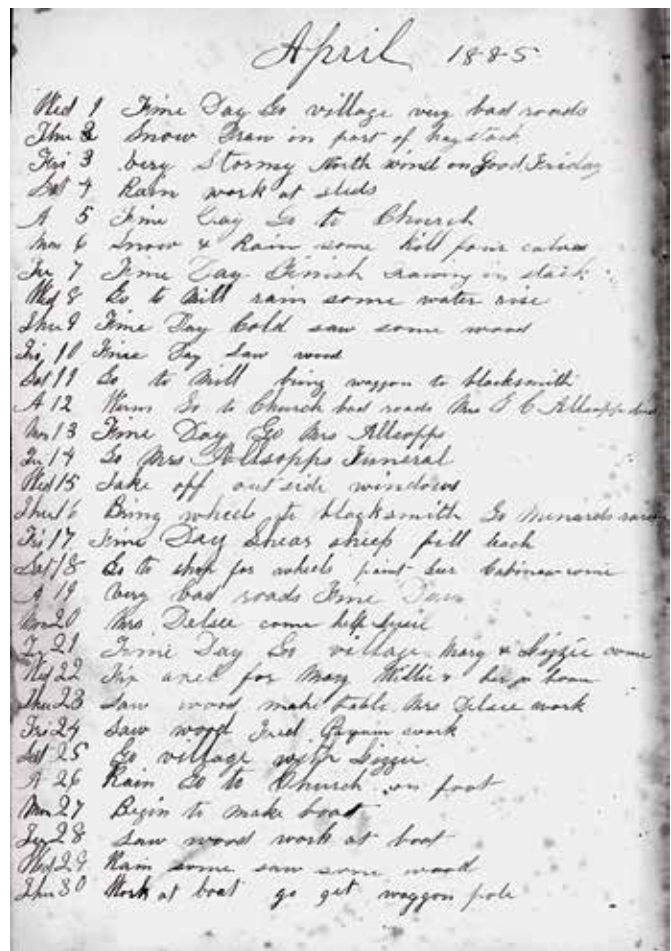 April 1885
Wed 1 Fine Day Go village very bad roads
Thu 2 Snow Draw in part of hay stack
Fri 3 Very Stormy North wind on Good Friday
Sat 4 Rain work at sleds
A 5 Fine Day Go to Church
Mon 6 Snow & Rain some Kill four calves
Tu 7 Fine Day Finish drawing in stack
Wed 8 Go to Mill rain some water rise
Thu 9 Fine Day Cold saw some wood
Fri 10 Fine Day Saw wood
Sat 11 Go to Mill bring waggon to blacksmith
A 12 Warm Go to Church bad roads Mrs Allsopp died
Mon 13 Fine Day Go Mrs Allsopps
Tu 14 Go Mrs Allsopps Funeral
Wed 15 Take off outside windows
Thu 16 Bring wheels to blacksmith Go
Fri 17 Fine Day Shear sheep
Sat 18 Go to shop for wheels paint
A 19 Very bad roads Fine Day
Mon 20 Mrs Delsee come help
Tu 21 Fine Day Go village Mary & Lizzie come
Wed 22 Fix for Mary Willie & her go home
Thu 23 Saw wood make table Mrs Delsee work
Fri 24 Saw wood Fred work
Sat 25 Go village with Lizzie
A 26 Rain Go to Church on foot
Mon 27 Begin to make boat
Tu 28 Saw wood work at boat
Wed 29 Rain some saw some wood
Thu 30 Work at boat go get waggon pole